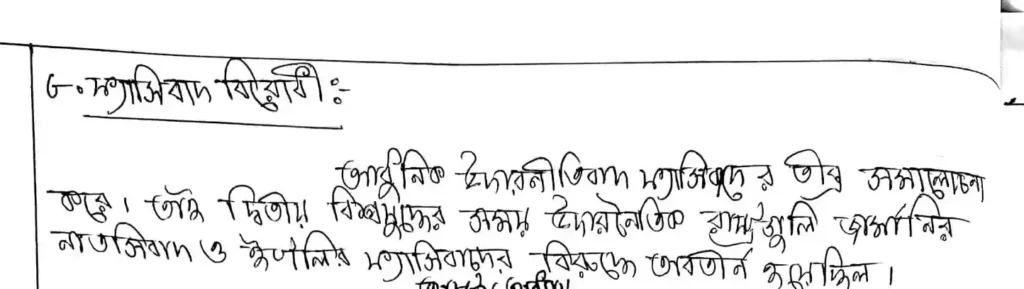 ৮. ফ্যাসিবাদ বিরোধী :-
আধুনিক উদারনীতিবাদ ফ্যাসিবাদের তীব্র সমালোচনা
করে। তাই দ্বিতীয় বিশ্বযুদ্ধের সময় উদারনৈতিক রাষ্ট্রগুলি জার্মানির
নাতসিবাদ ও ইতালির ফ্যাসিবাদের বিরুদ্ধে অবতীর্ন হয়েছিল।